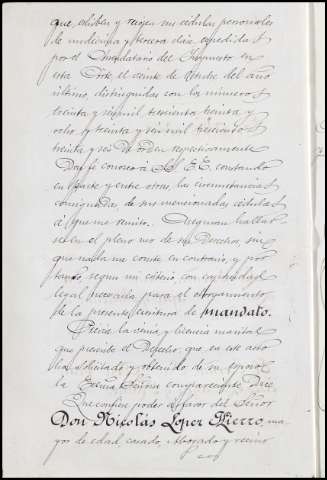 que exhiben y recojen sus cédulas personales
de undécima y tercera clase expedidas
por el Arrendatario del Impuesto en
esta Corte el veinte de Octubre del año
último, distinguidas con los números
treinta y seis mil trescientos treinta y
ocho y treinta y seis mil trescientos
treinta y seis de orden respectivamente
Doy fé conocer a SS. EE. constando
en parte y entre otras, las circunstancias
consignadas, de sus mencionadas cédulas
á que me remito. Aseguran hallar
se en el pleno uso de sus Derechos, sin
que nada me conste en contrario, y por
tanto, segun mi criterio, con capacidad
legal necesaria para el otorgamiento
de la presente escritura de mandato.
Prévia la vénia y licencia marital
que prescribe el Derecho, que en este acto
ha solicitado y obtenido de su esposo
la Excma Señora compareciente Dice
Que confiere poder á favor del Señor
Don Nicolás Lopez Hierro, ma
yor de edad, casado, Abogado y vecino